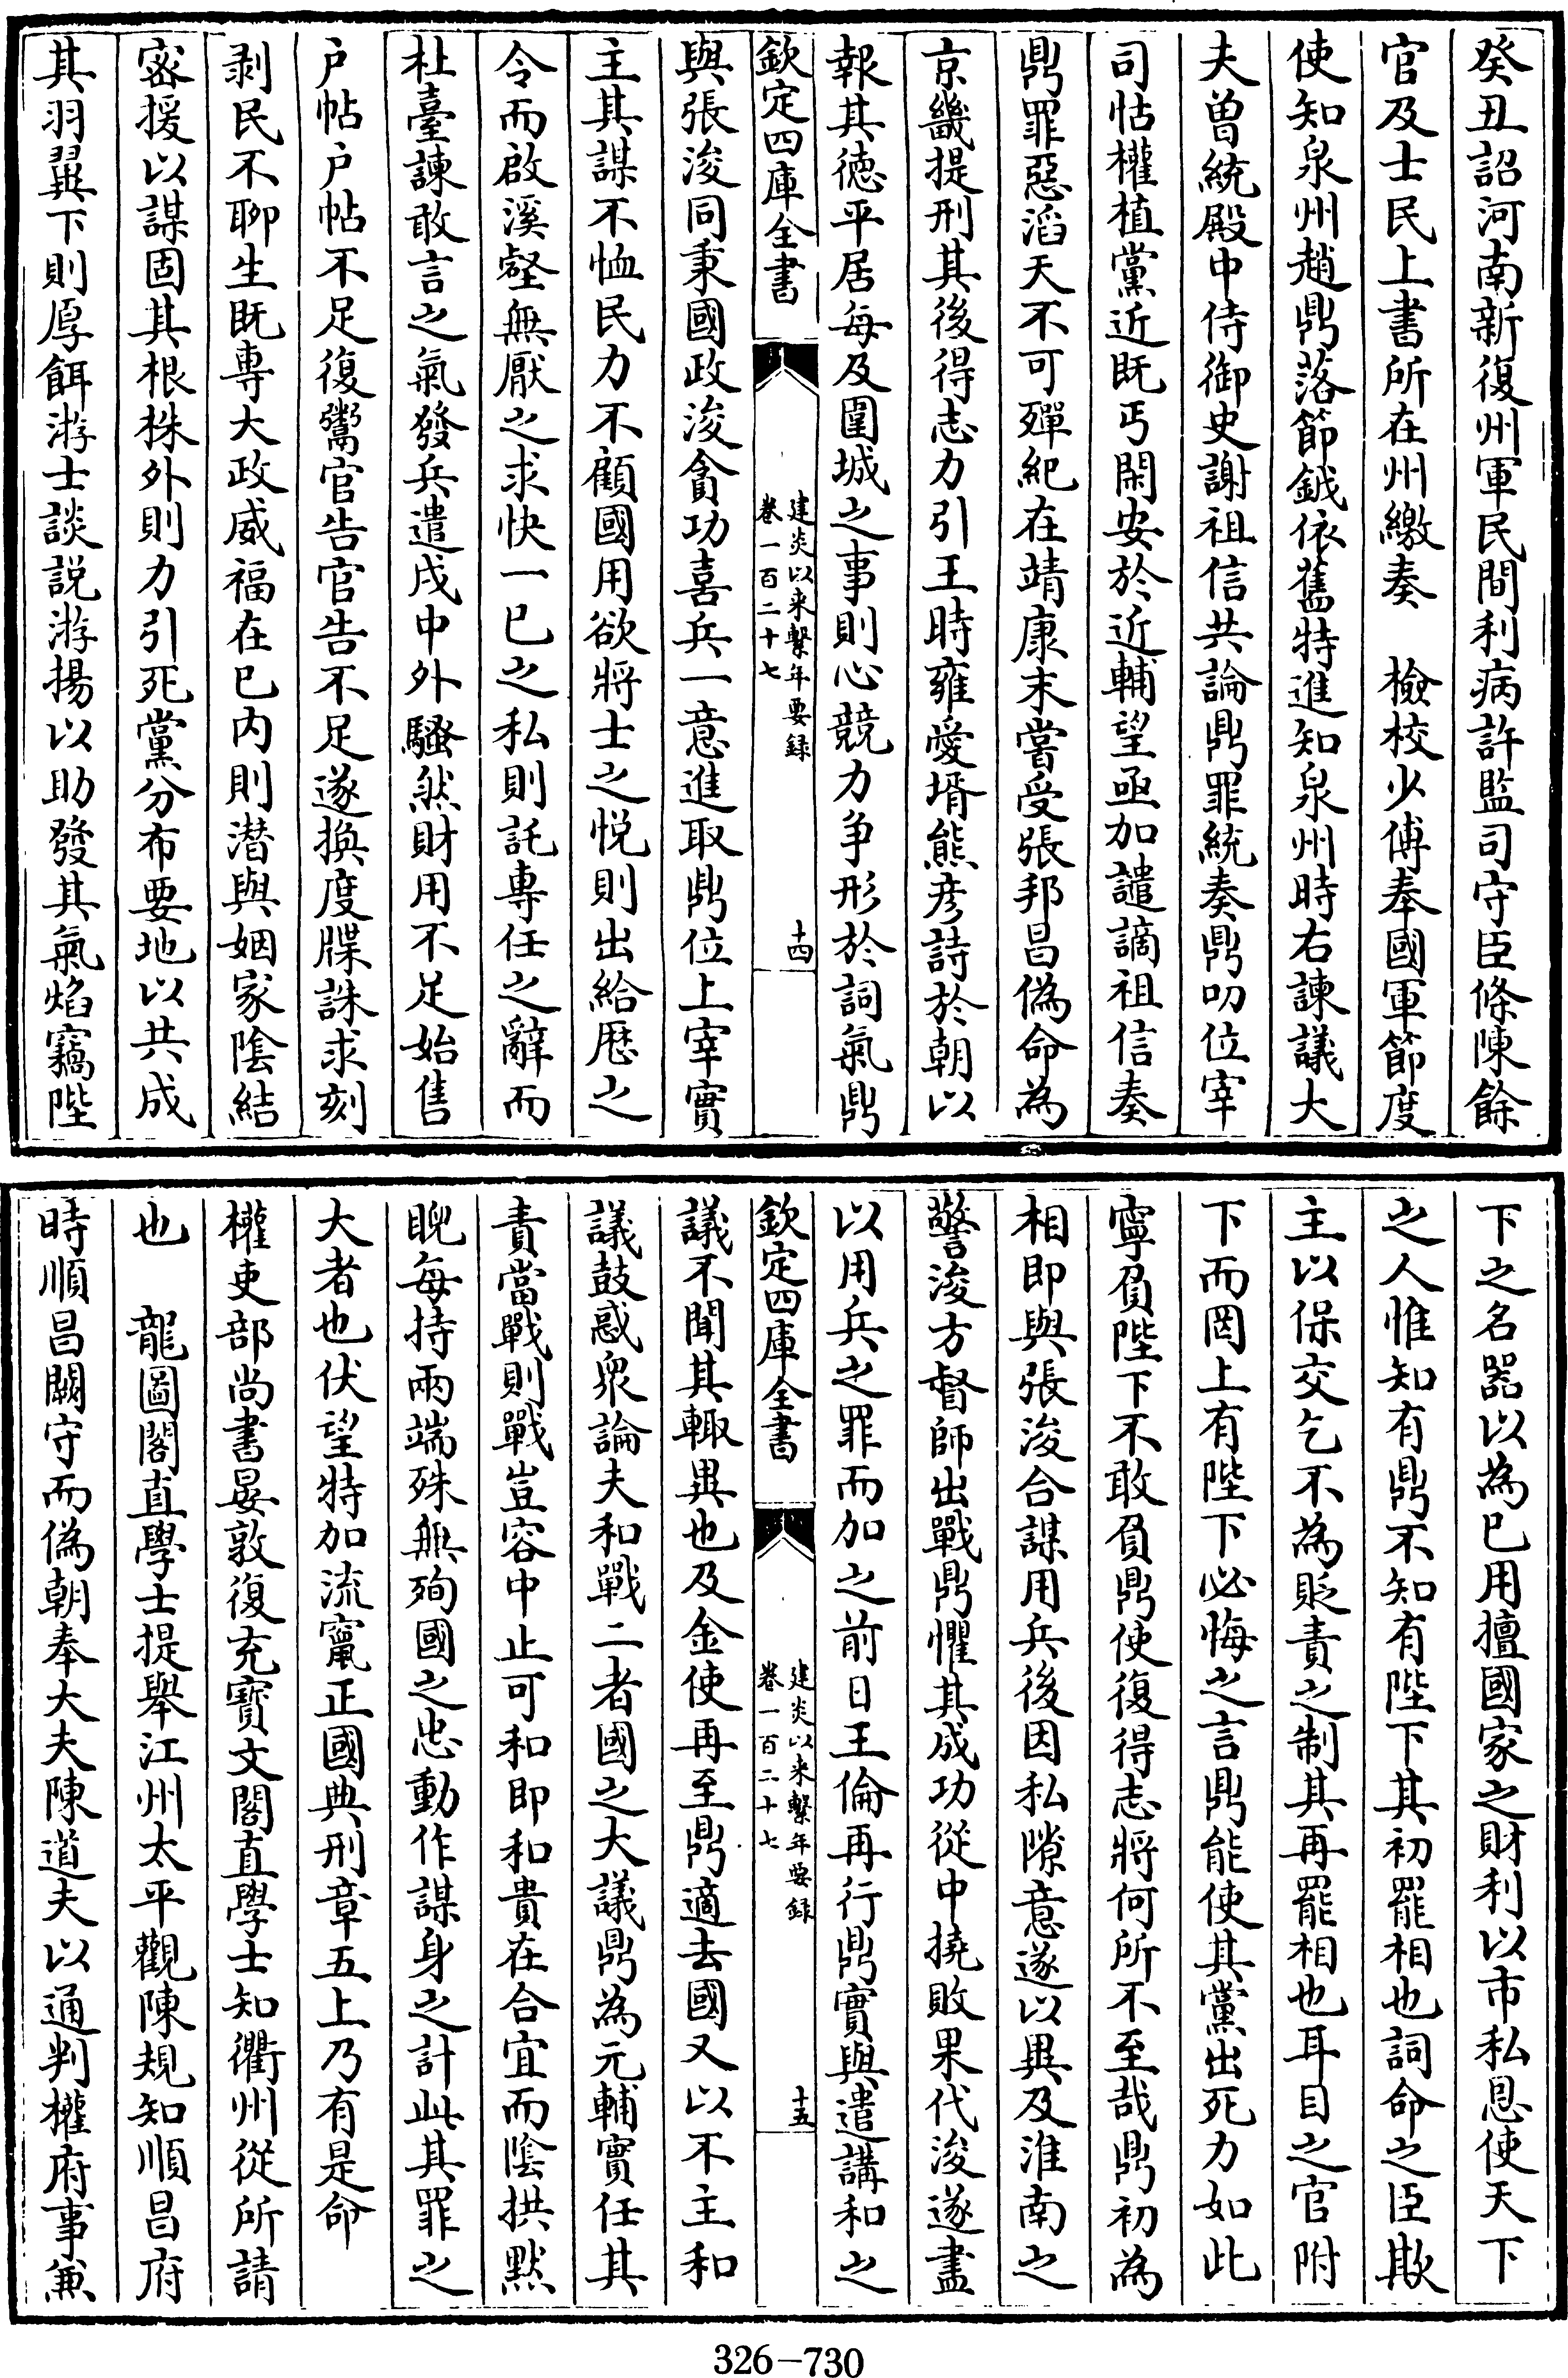 癸丑詔河南新復州軍民間利病許監司守臣條陳餘
官及士民上書所在州繳奏　檢校少傅奉國軍節度
使知泉州趙鼎落節鉞依舊特進知泉州時右諫議大
夫曾統殿中侍御史謝祖信共論鼎罪統奏鼎叨位宰
司怙權植黨近既丐閑安於近輔望亟加譴謫祖信奏
鼎罪惡滔天不可殫紀在靖康末嘗受張邦昌偽命為
京畿提刑其後得志力引王時雍愛壻熊彥詩於朝以
報其德平居每及圍城之事則心競力爭形於詞氣鼎
欽定四庫全書
建炎以来繫年要録
卷一百二十七
十四
與張浚同秉國政浚貪功喜兵一意進取鼎位上宰實
主其謀不恤民力不顧國用欲將士之悅則出給厯之
令而啟溪壑無厭之求快一已之私則託專任之辭而
杜臺諫敢言之氣發兵遣戍中外騷然財用不足始售
户帖户帖不足復鬻官告官告不足遂換度牒誅求刻
剥民不聊生既專大政威福在已内則潜與姻家陰結
宻援以謀固其根株外則力引死黨分布要地以共成
其羽翼下則厚餌游士談説游揚以助發其氣焰竊陛
下之名器以為已用擅國家之財利以市私恩使天下
之人惟知有鼎不知有陛下其初罷相也詞命之臣欺
主以保交乞不為貶責之制其再罷相也耳目之官附
下而罔上有陛下必悔之言鼎能使其黨出死力如此
寧負陛下不敢負鼎使復得志將何所不至哉鼎初為
相即與張浚合謀用兵後因私隙意遂以異及淮南之
警浚方督師出戰鼎懼其成功從中撓敗果代浚遂盡
以用兵之罪而加之前日王倫再行鼎實與遣講和之
欽定四庫全書
建炎以来繫年要録
卷一百二十七
十五
議不聞其輙異也及金使再至鼎適去國又以不主和
議鼓惑衆論夫和戰二者國之大議鼎為元輔實任其
責當戰則戰豈容中止可和即和貴在合宜而陰拱默
睨每持兩端殊無殉國之忠動作謀身之計此其罪之
大者也伏望特加流竄正國典刑章五上乃有是命
權吏部尚書晏敦復充寳文閣直學士知衢州從所請
也　龍圖閣直學士提舉江州太平觀陳規知順昌府
時順昌闕守而偽朝奉大夫陳道夫以通判權府事兼
326－730